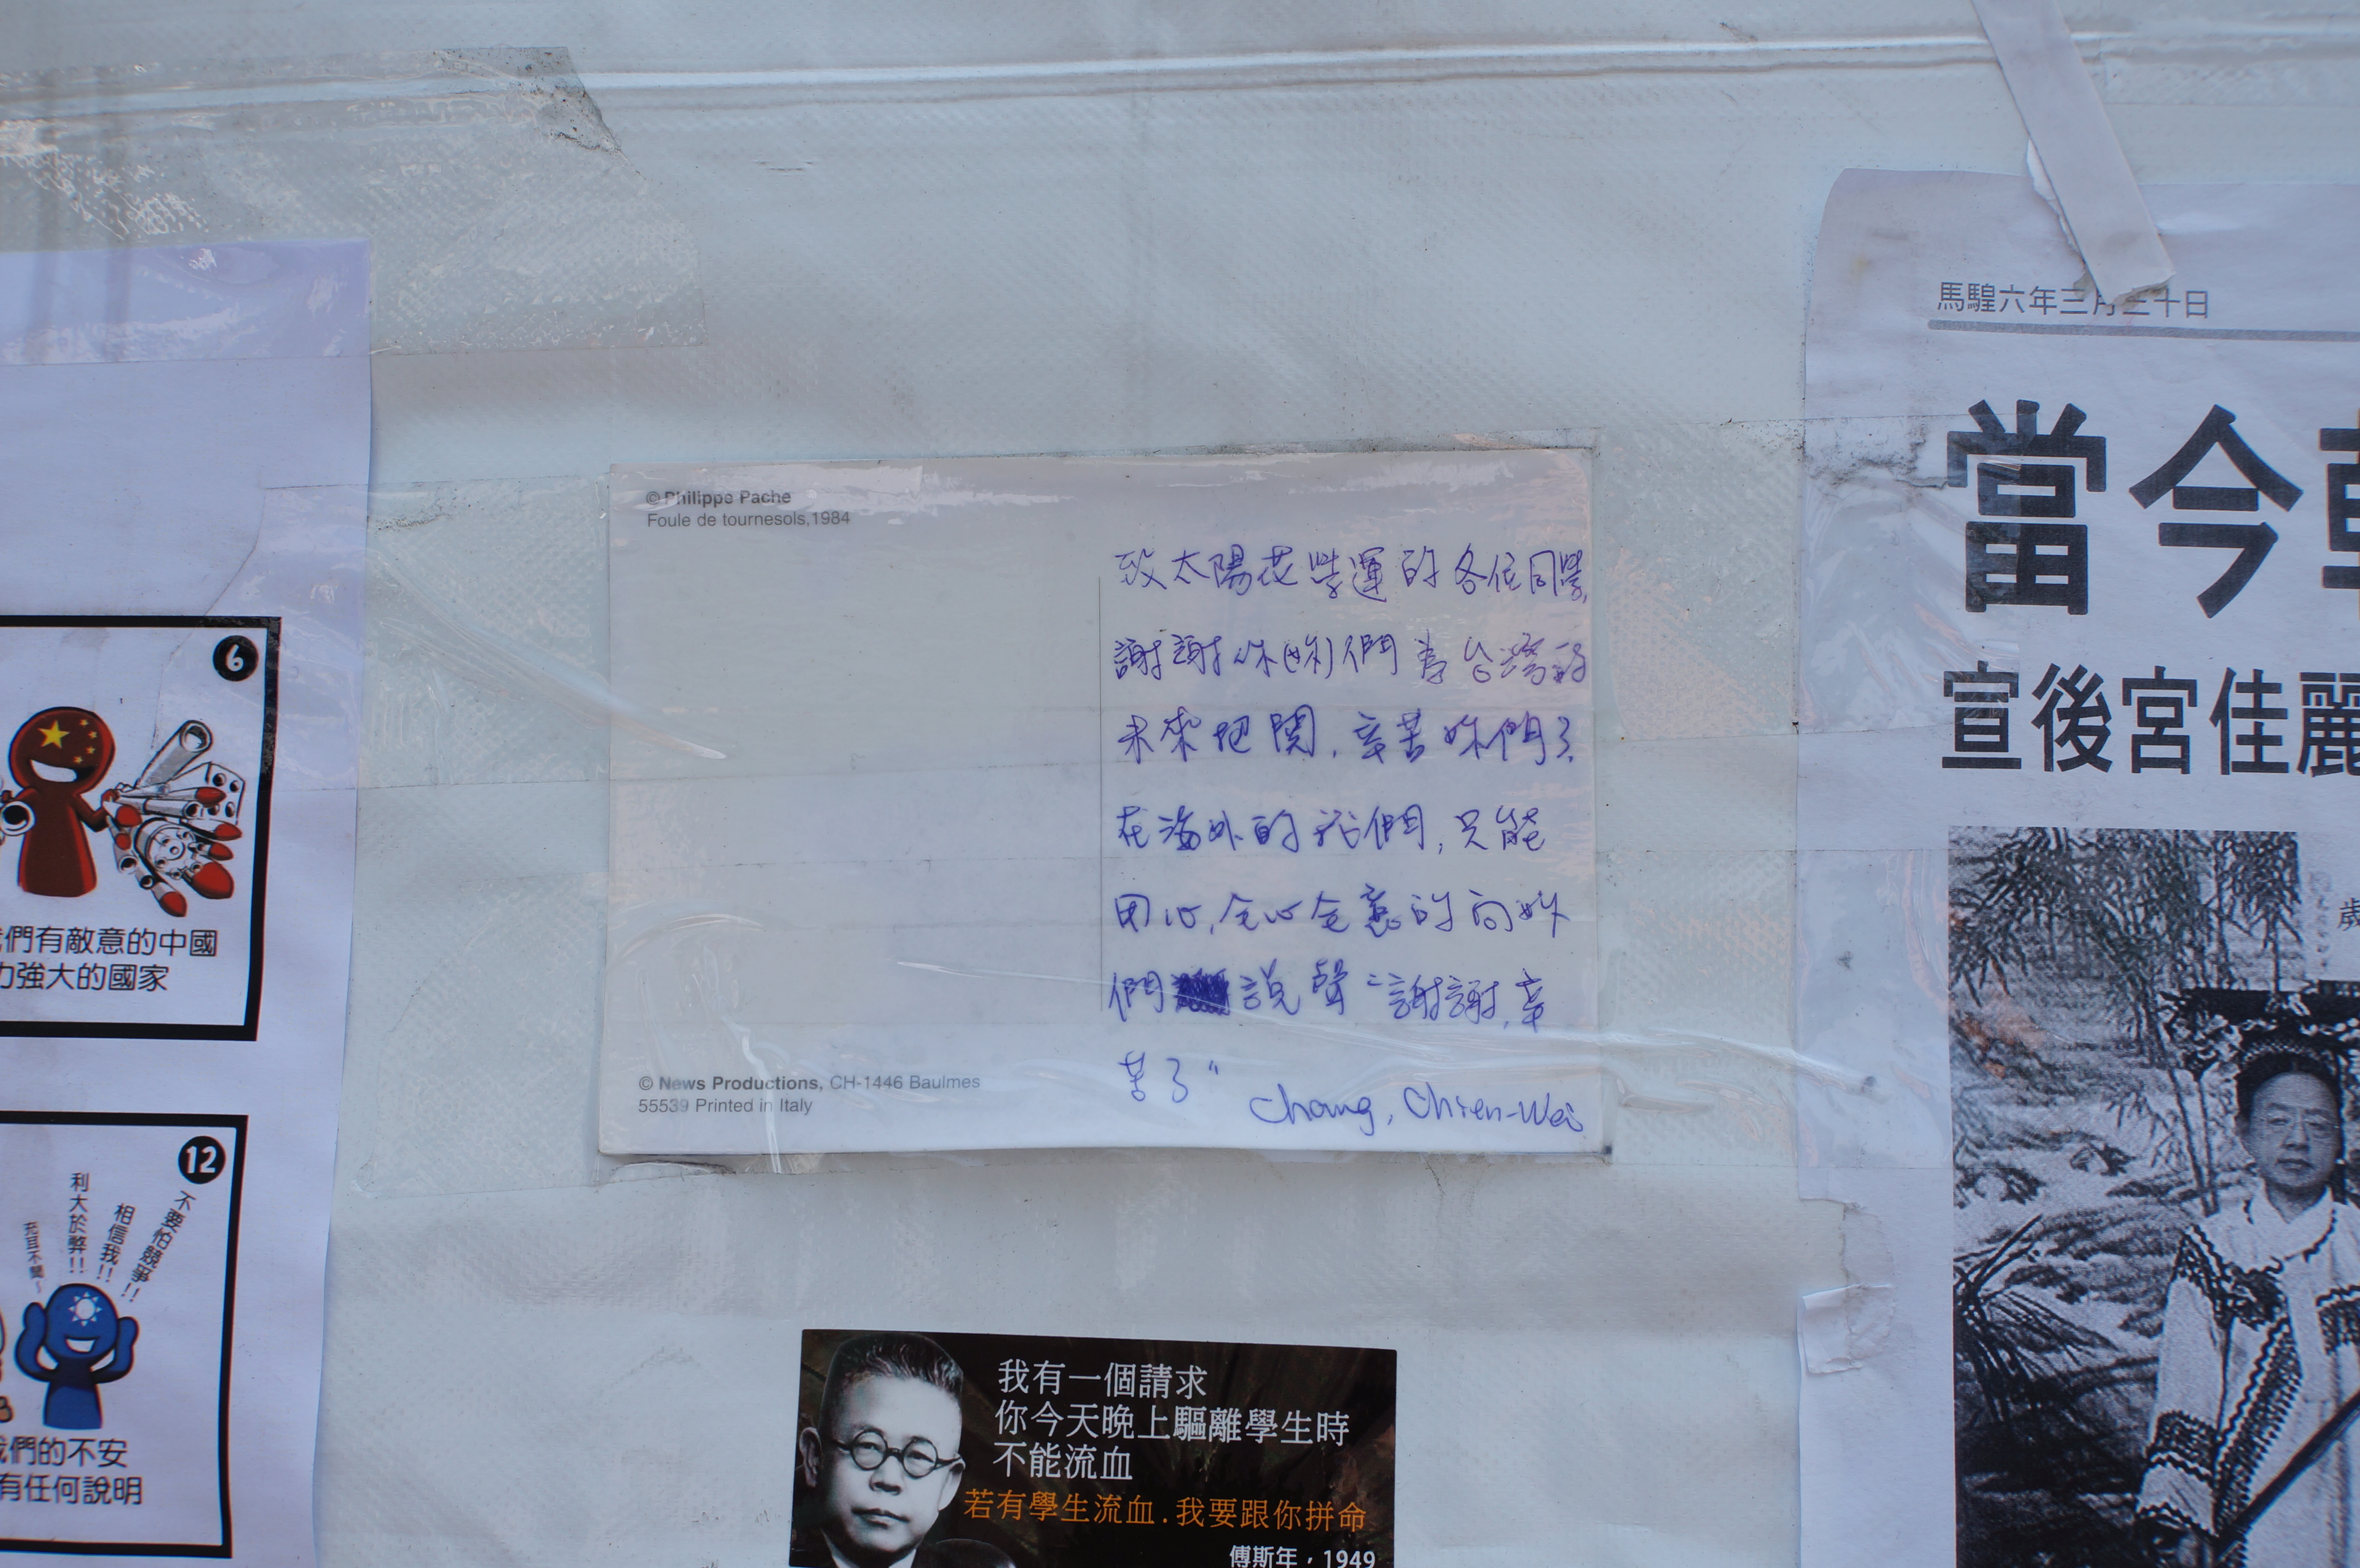 6
們有敵意的中國
強大的國家
12
不要怕競爭!!
相信我!!
利大於弊!!
充耳不聞~
們的不安
有任何說明
© Philippe Pache
Foule de tournesols,1984
致太陽花學運的各位同學,
謝謝你(妳)們為台灣的
未來把關,辛苦妳們了.
在海外的我們,只能
用心,全心全意的向妳
們說聲“謝謝,辛
苦了”
Chang, Chien-Wei
© News Productions, CH-1446 Baulmes
55539 Printed in Italy
我有一個請求
你今天晚上驅離學生時
不能流血
若有學生流血.我要跟你拼命
傅斯年，1949
馬騜六年三月三十日
當今
宣後宮佳麗
歲